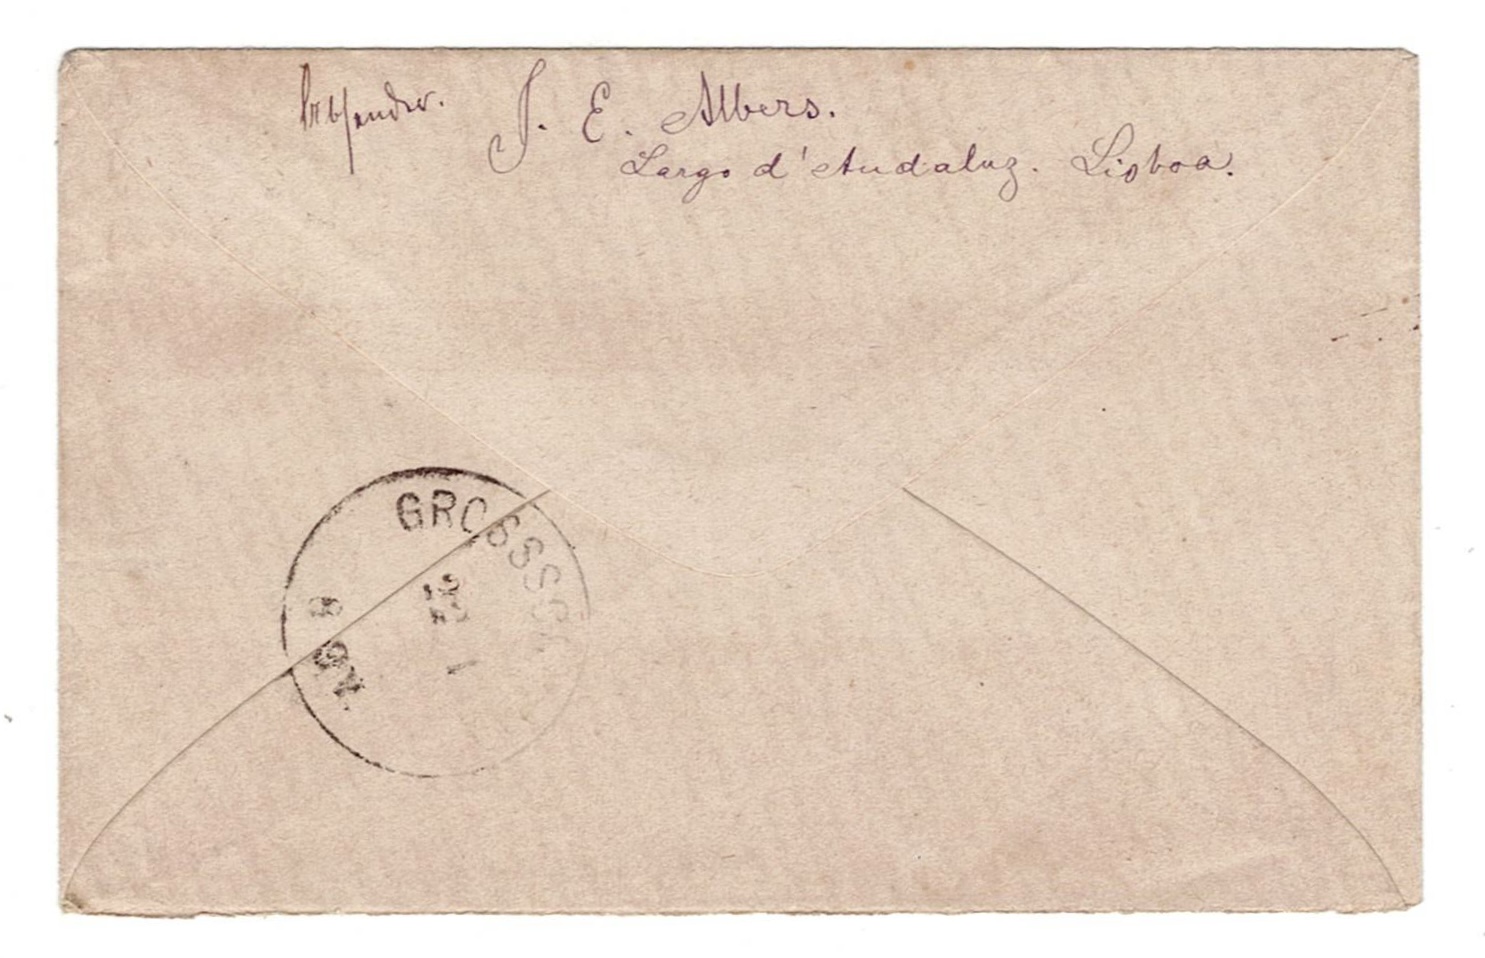 Absender. J. E. Albers.
Largo d'Andaluz. Lisboa.
GROSSSC